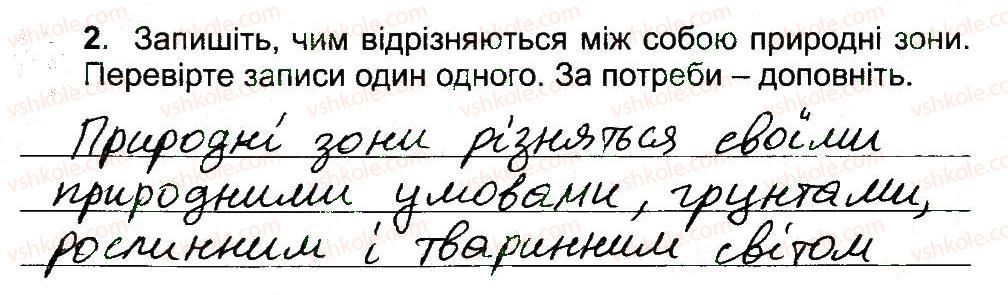 2. Запишіть, чим відрізняються між собою природні зони.
Перевірте записи один одного. За потреби – доповніть.
Природні зони різняться своїми
природними умовами, грунтами,
рослинним і тваринним світом